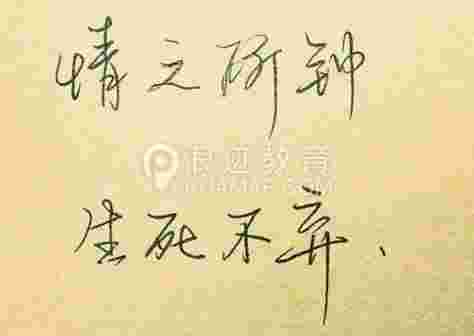 情之所钟
浪迹教育
生死不弃、